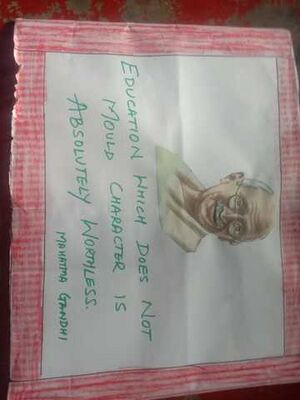 EDUCATION WHICH DOES NOT
MOULD CHARACTER IS
ABSOLUTELY WORTHLESS.
MAHATMA GANDHI